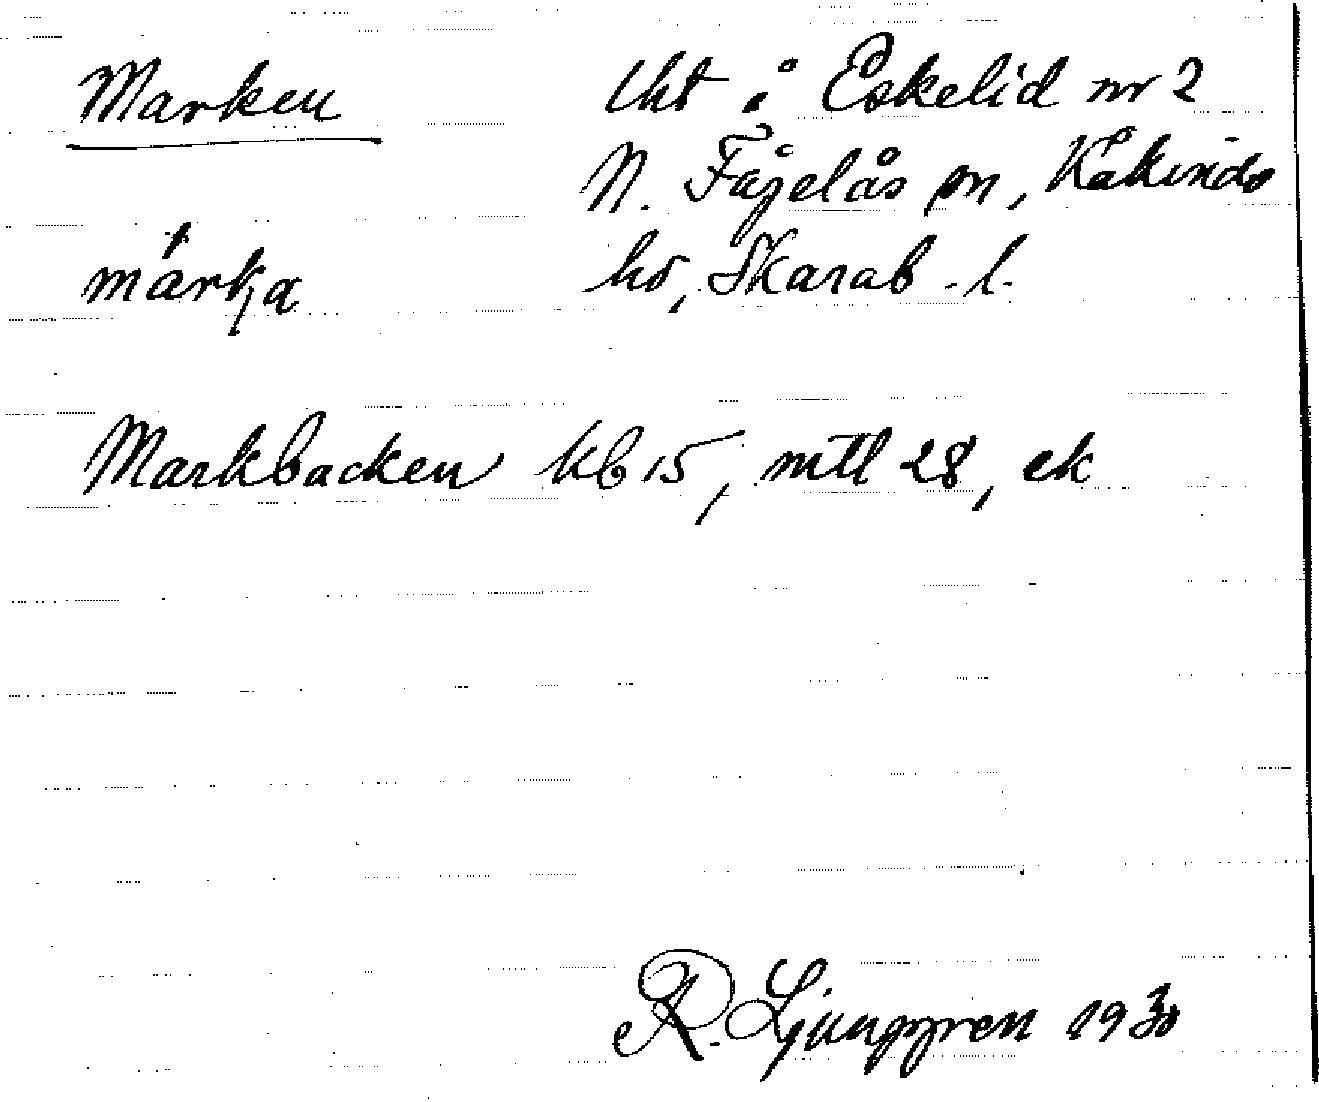 Marken lht å Eskelid nr 2
N. Fågelås sn, Kåkinds
márka hd, Skarab. l.
Markbacken kb 15, mtl 28, ek
R. Ljunggren 1930